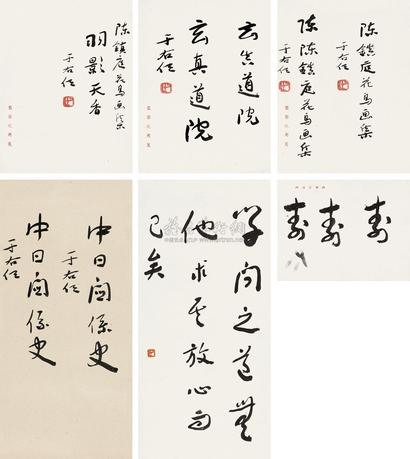 陈鎮庭花鸟画集
羽影天香
于右任
玄真道院
玄真道院
于右任
陈鎮庭花鸟画集
于右任
陈陈鎮庭花鸟画集
于右任
中日関係史
于右任
中日関係史
于右任
学问之道無
他求其放心而
已矣
寿
寿
寿